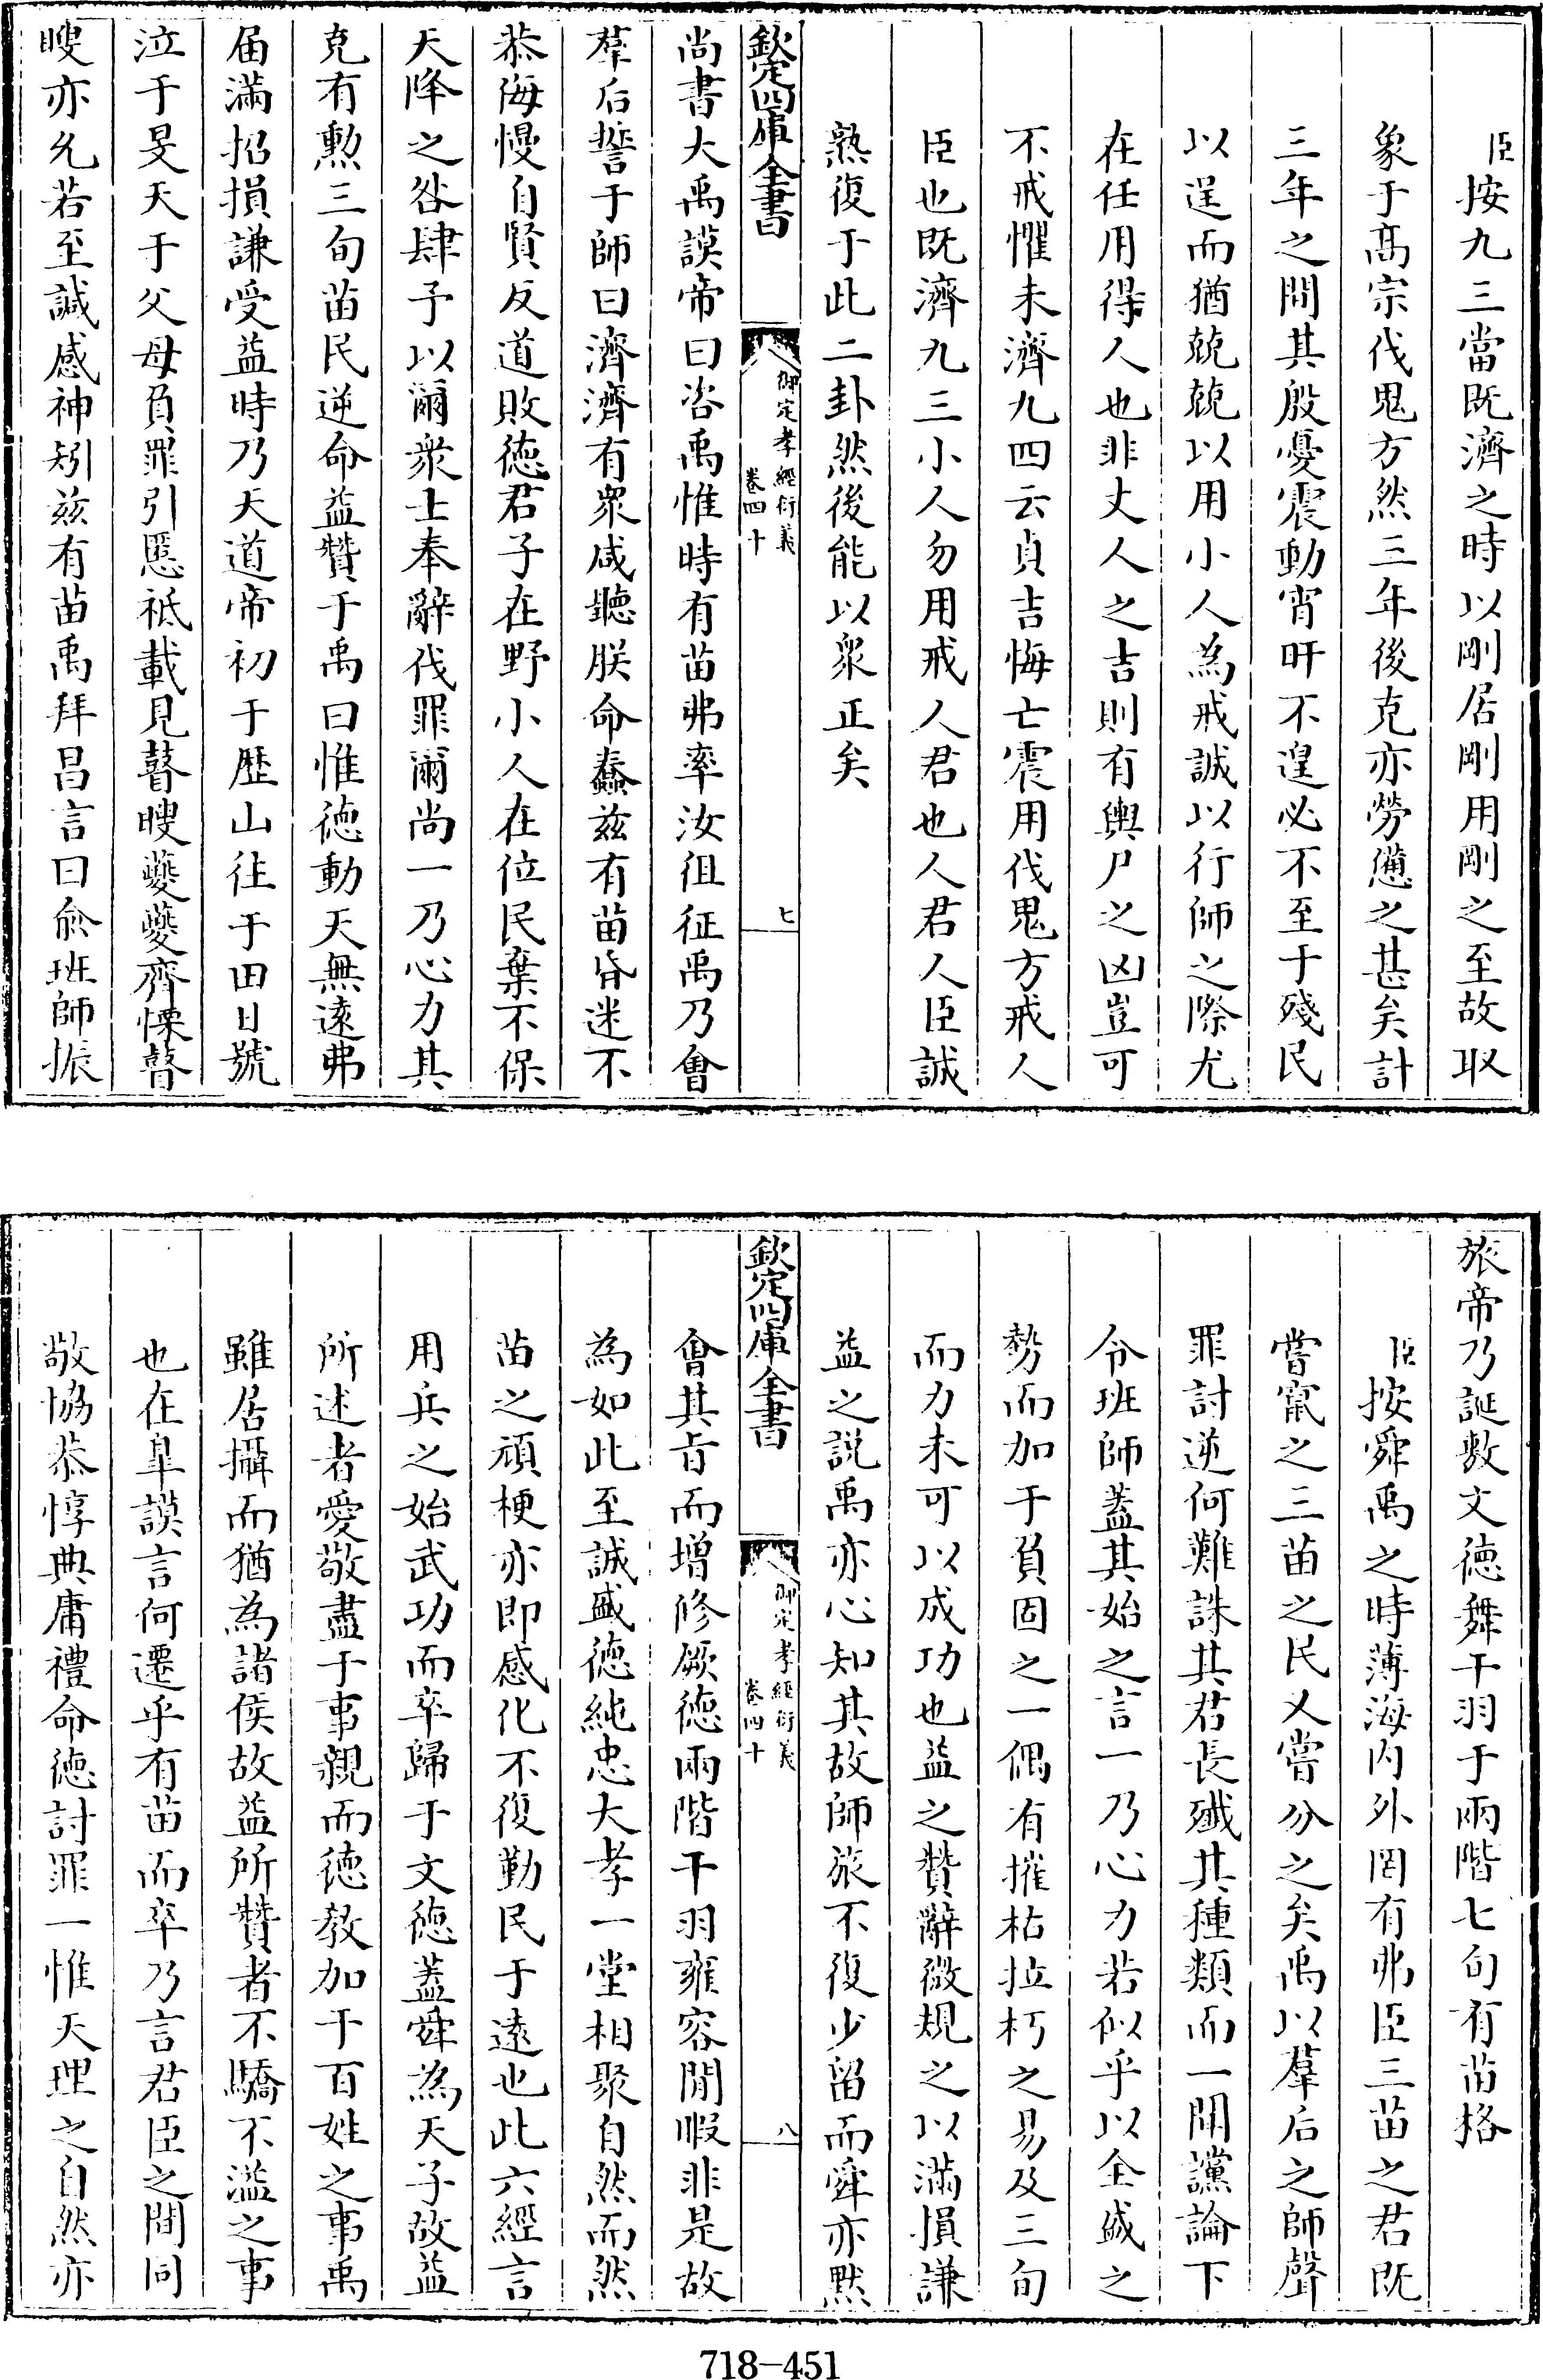 臣按九三當既濟之時以剛居剛用剛之至故取
象于髙宗伐鬼方然三年後克亦勞憊之甚矣計
三年之間其殷憂震動宵旰不遑必不至于殘民
以逞而猶兢兢以用小人為戒誠以行師之際尤
在任用得人也非丈人之吉則有輿尸之凶豈可
不戒懼未濟九四云貞吉悔亡震用伐鬼方戒人
臣也既濟九三小人勿用戒人君也人君人臣誠
熟復于此二卦然後能以衆正矣
欽定四庫全書
御定孝經衍義
卷四十
七
尚書大禹謨帝曰咨禹惟時有苗弗率汝徂征禹乃會
羣后誓于師曰濟濟有衆咸聽朕命蠢兹有苗昏迷不
恭侮慢自賢反道敗徳君子在野小人在位民棄不保
天降之咎肆予以爾衆士奉辭伐罪爾尚一乃心力其
克有勲三旬苗民逆命益贊于禹曰惟徳動天無逺弗
届滿招損謙受益時乃天道帝初于歴山往于田日號
泣于旻天于父母負罪引慝祗載見瞽瞍夔夔齊慄瞽
瞍亦允若至諴感神矧兹有苗禹拜昌言曰俞班師振
旅帝乃誕敷文徳舞干羽于兩階七旬有苗格
臣按舜禹之時薄海内外罔有弗臣三苗之君既
嘗竄之三苗之民又嘗分之矣禹以羣后之師聲
罪討逆何難誅其君長殱其種類而一開讜論下
令班師蓋其始之言一乃心力若似乎以全盛之
勢而加于負固之一偶有摧枯拉朽之易及三旬
而力未可以成功也益之贊辭微規之以滿損謙
益之説禹亦心知其故師旅不復少留而舜亦黙
欽定四庫全書
御定孝經衍義
卷四十
八
會其㫖而增修厥徳兩階干羽雍容閒暇非是故
為如此至誠盛徳純忠大孝一堂相聚自然而然
苗之頑梗亦即感化不復勤民于逺也此六經言
用兵之始武功而卒歸于文徳蓋舜為天子故益
所述者愛敬盡于事親而徳教加于百姓之事禹
雖居攝而猶為諸侯故益所贊者不驕不溢之事
也在臯謨言何遷乎有苗而卒乃言君臣之間同
敬協恭惇典庸禮命徳討罪一惟天理之自然亦
718-451